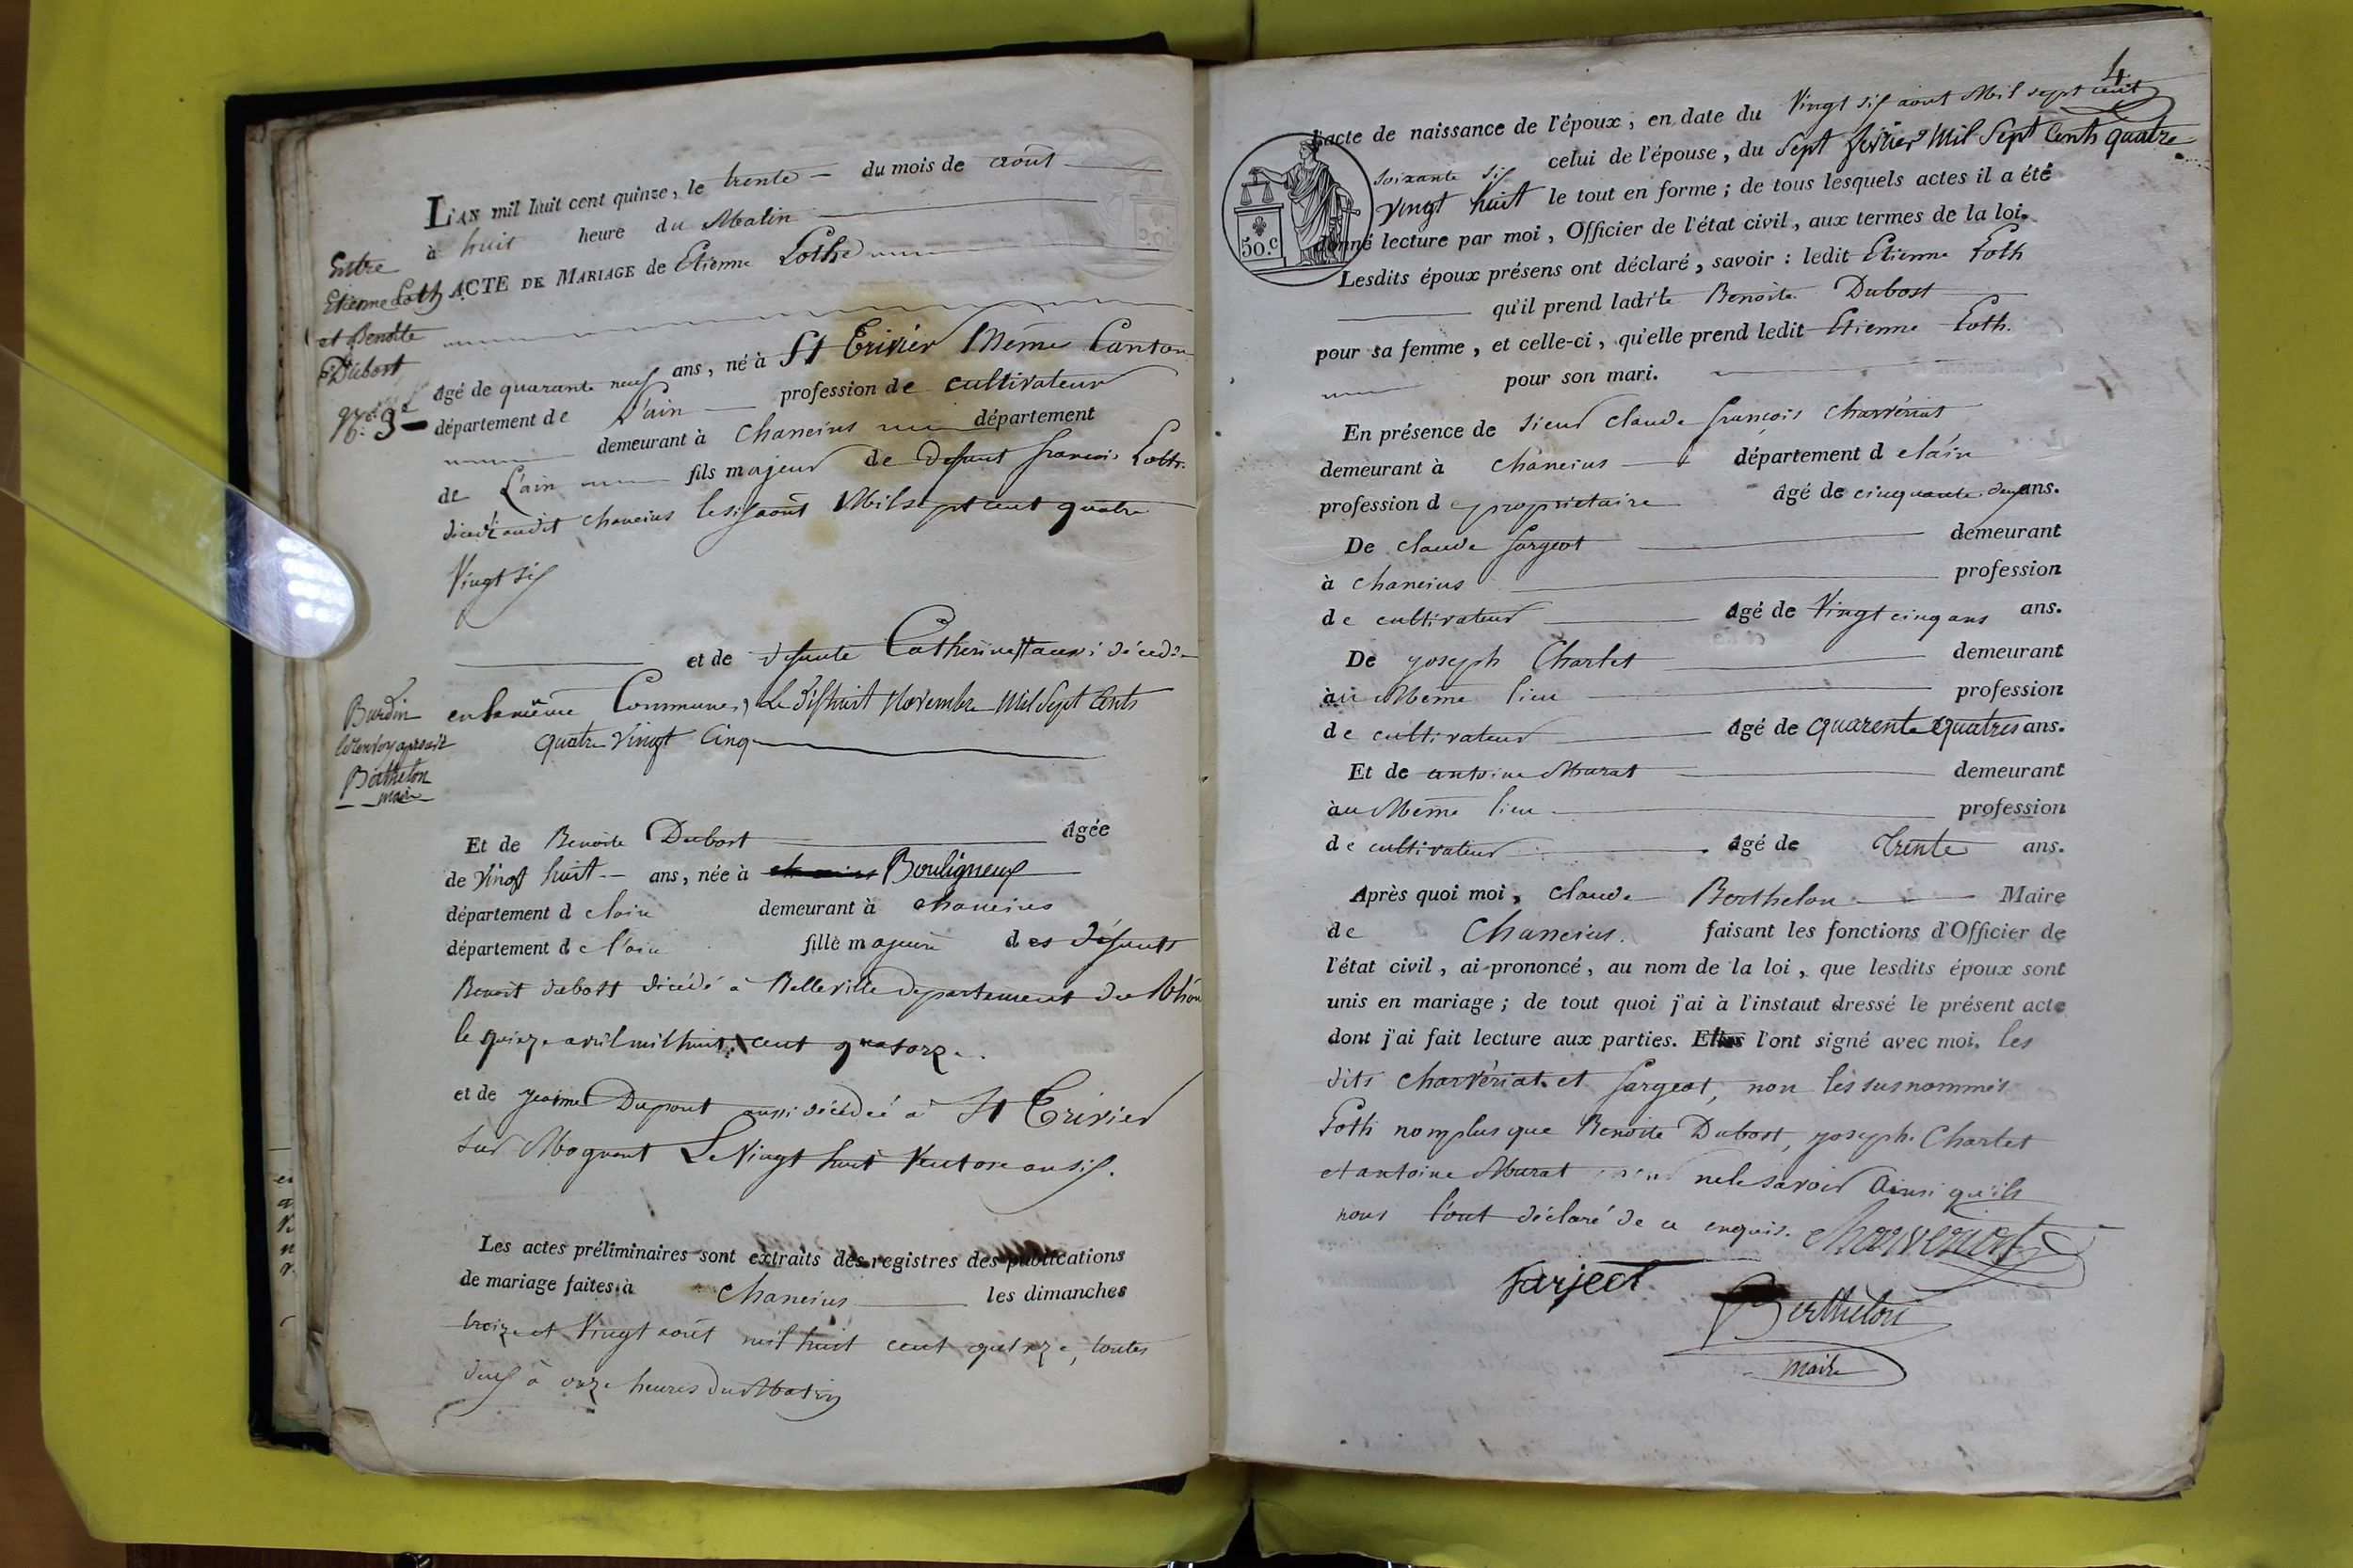 L'AN mil huit cent quinze, le trente du mois de août
à huit heure du Matin
ACTE DE MARIAGE de Etienne Loth
Entre
Etienne Loth
et Benoite
Dubost
âgé de quarante neuf ans, né à St Trivier Même Canton
département de L'ain profession de cultivateur
demeurant à Chaneins département
de L'ain fils majeur de defunt francois Loth
décédé audit chaneins le six août Mil sept cent quatre
Vingt six
et de defunte Catherine aussi décédée
en la même Commune, Le dix huit Novembre Mil Sept Cents
quatre Vingt Cinq
Burdin
Berthelon
maire
Et de Benoite Dubost âgée
de Vingt huit ans, née à Bouligneux
département de l'ain demeurant à chaneins
département de l'ain fille majeure des défunts
Benoit dubost décédé à Belleville departement du Rhône
le quinze avril mil huit cent quatorze.
et de jeanne Dupont aussi décédée à St Trivier
sur Mognant Le Vingt huit Ventose an six.
Les actes préliminaires sont extraits des registres des publications
de mariage faites à Chaneins les dimanches
treize et Vingt août mil huit cent quinze, toutes
deux à onze heures du Matin
4
l'acte de naissance de l'époux, en date du Vingt six aout Mil sept cent
soixante six celui de l'épouse, du Sept fevrier Mil Sept Cents quatre
vingt huit le tout en forme; de tous lesquels actes il a été
donné lecture par moi, Officier de l'état civil, aux termes de la loi.
50.c
Lesdits époux présens ont déclaré, savoir : ledit Etienne Loth
qu'il prend ladite Benoite Dubost
pour sa femme, et celle-ci, qu'elle prend ledit Etienne Loth.
pour son mari.
En présence de sieur claude francois charvériat
demeurant à chaneins département de l'ain
profession de propriétaire âgé de cinquante deux ans.
De claude fargeot demeurant
à chaneins profession
de cultivateur âgé de Vingt cinq ans ans.
De joseph Charlet demeurant
au Même lieu profession
de cultivateur âgé de quarente quatres ans.
Et de antoine Murat demeurant
au Même lieu profession
de cultivateur âgé de Trente ans.
Après quoi moi, claude Berthelon Maire
de Chaneins. faisant les fonctions d'Officier de
l'état civil, ai prononcé, au nom de la loi, que lesdits époux sont
unis en mariage; de tout quoi j'ai à l'instant dressé le présent acte
dont j'ai fait lecture aux parties. Elles l'ont signé avec moi. les
dits charvériat et fargeot, non les susnommés
Loth nomplus que Benoite Dubost, joseph Charlet
et antoine Murat nele savoir Ainsi qu'ils
nous l'ont déclaré de ce enquis. Charveriat
farjeot
Berthelon
maire